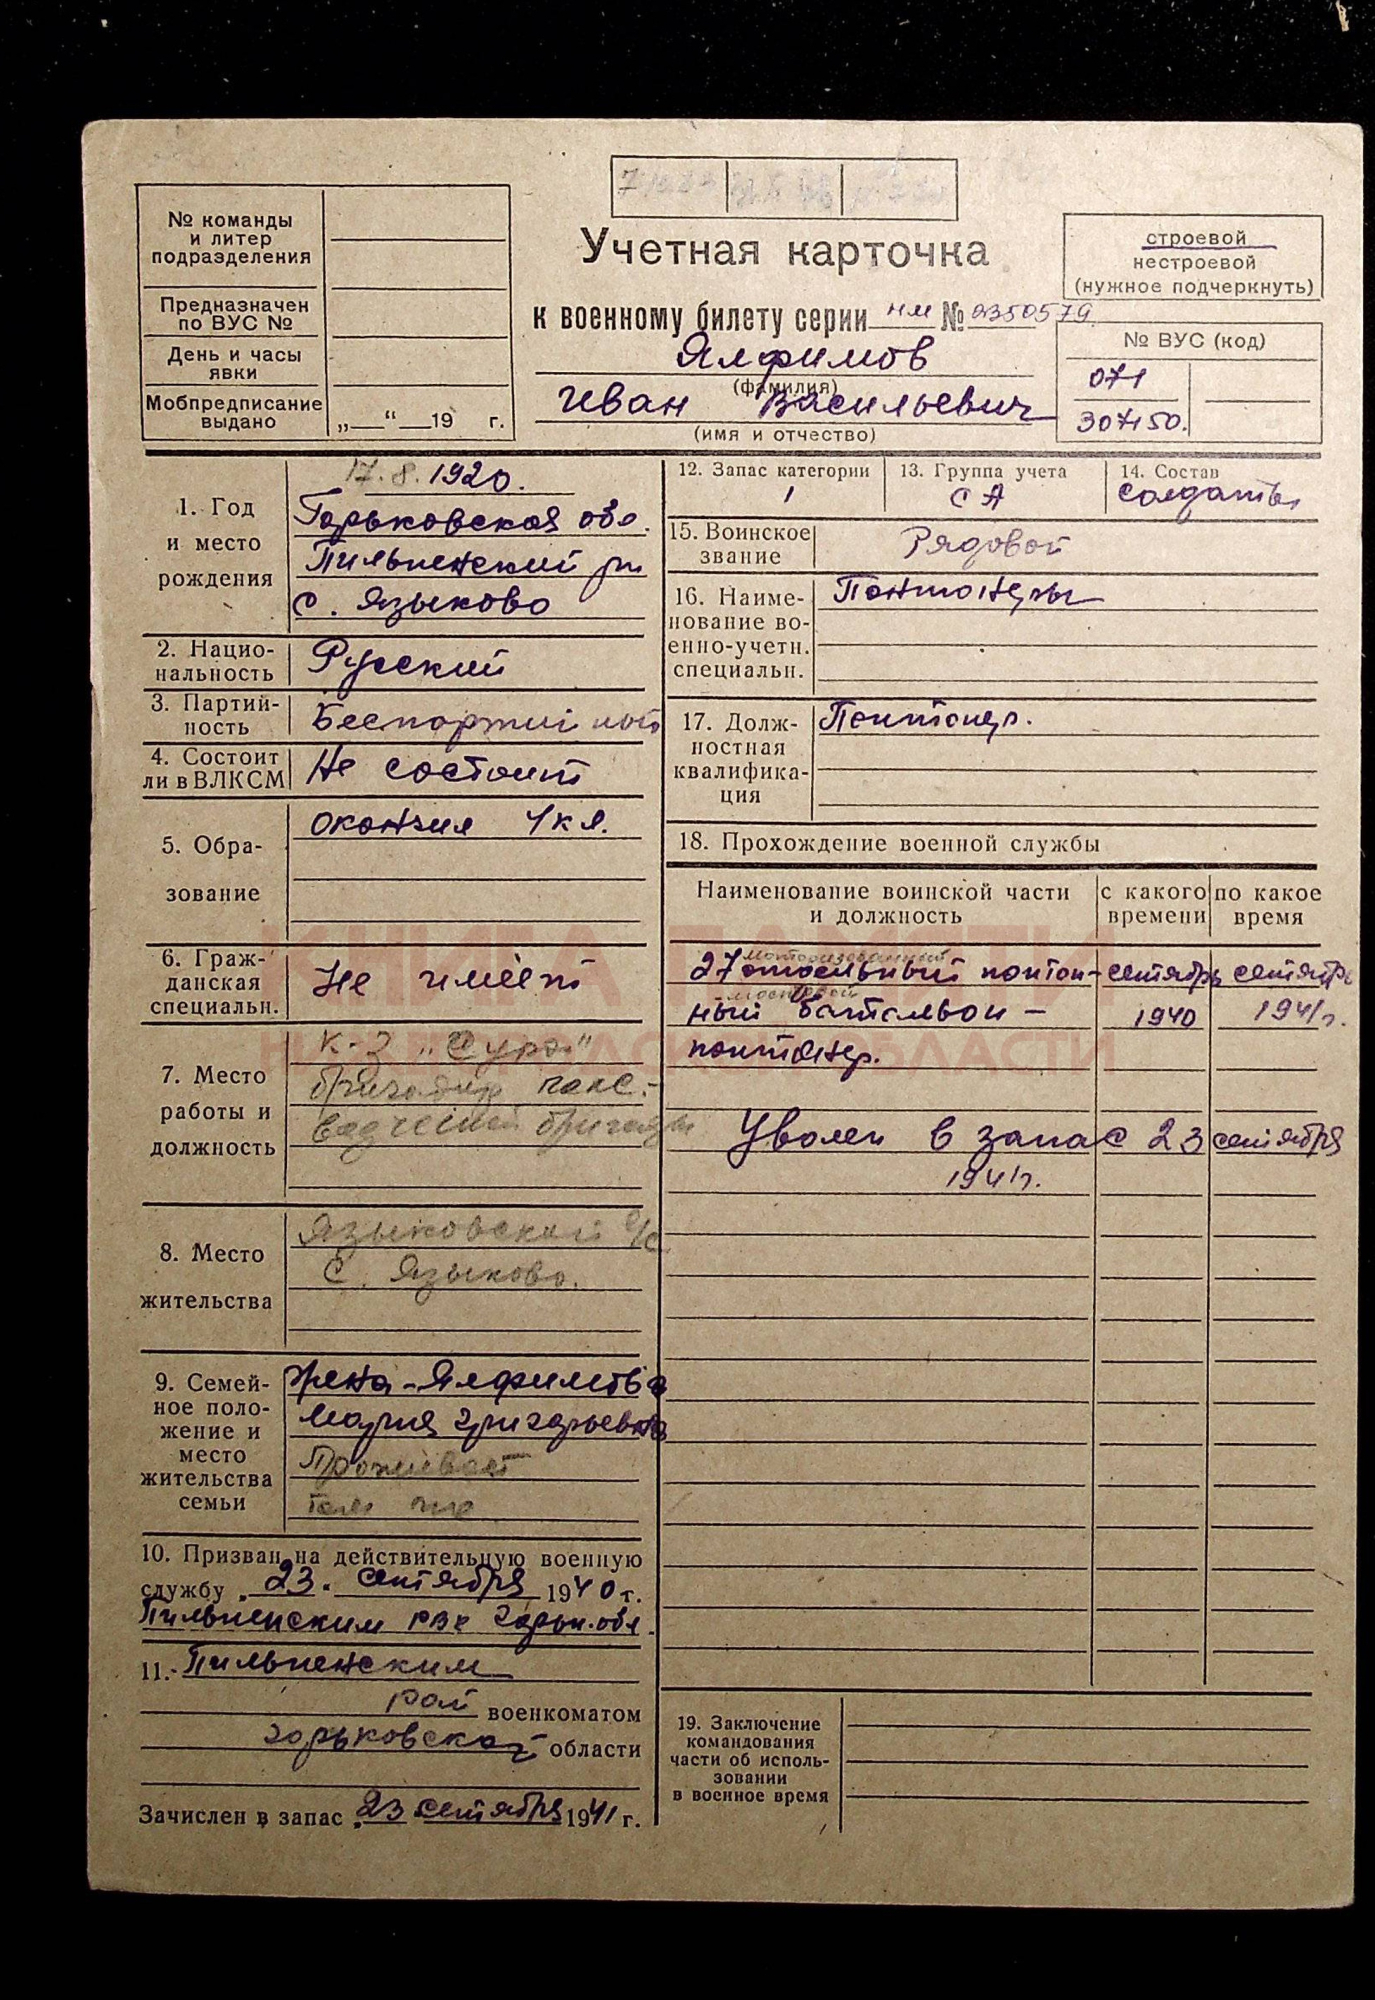 № команды
и литер
подразделения
Предназначен
по ВУС №
День и часы
явки
Мобпредписание
выдано
„ “ 19 г.
Учетная карточка
к военному билету серии нм № 0350579
Ялфимов
(фамилия)
Иван Васильевич
(имя и отчество)
строевой
нестроевой
(нужное подчеркнуть)
№ ВУС (код)
071
307150.
1. Год
и место
рождения
17.8.1920.
Горьковская обл.
Пильненский рн
с. Языково
2. Нацио-
нальность
Русский
3. Партий-
ность
Беспартийный
4. Состоит
ли в ВЛКСМ
Не состоит
5. Обра-
зование
окончил 4 кл.
6. Граж-
данская
специальн.
Не имеет
7. Место
работы и
должность
К-з „Сура“
бригадир
бригады
8. Место
жительства
Языковский с/с
с. Языково.
9. Семей-
ное поло-
жение и
место
жительства
семьи
Жена - Ялфимова
Мария Григорьевна
Проживает
там же
10. Призван на действительную военную
службу 23. сентября 1940 г.
Пильненским РВК Горьк. обл.
11. Пильненским
рай военкоматом
Горьковской области
Зачислен в запас 23 сентября 1941 г.
12. Запас категории
1
13. Группа учета
СА
14. Состав
солдаты
15. Воинское
звание
Рядовой
16. Наиме-
нование во-
енно-учетн.
специальн.
Понтонеры
17. Долж-
ностная
квалифика-
ция
Понтонер.
18. Прохождение военной службы
Наименование воинской части
и должность
с какого
времени
по какое
время
моторизованный
27 отдельный понтон- сентябрь сентябрь
мостовой
ный батальон - 1940 1941г.
понтонер.
Уволен в запас 23 сентября
1941г.
19. Заключение
командования
части об исполь-
зовании
в военное время
КНИГА ПАМЯТИ
НИЖЕГОРОДСКОЙ ОБЛАСТИ